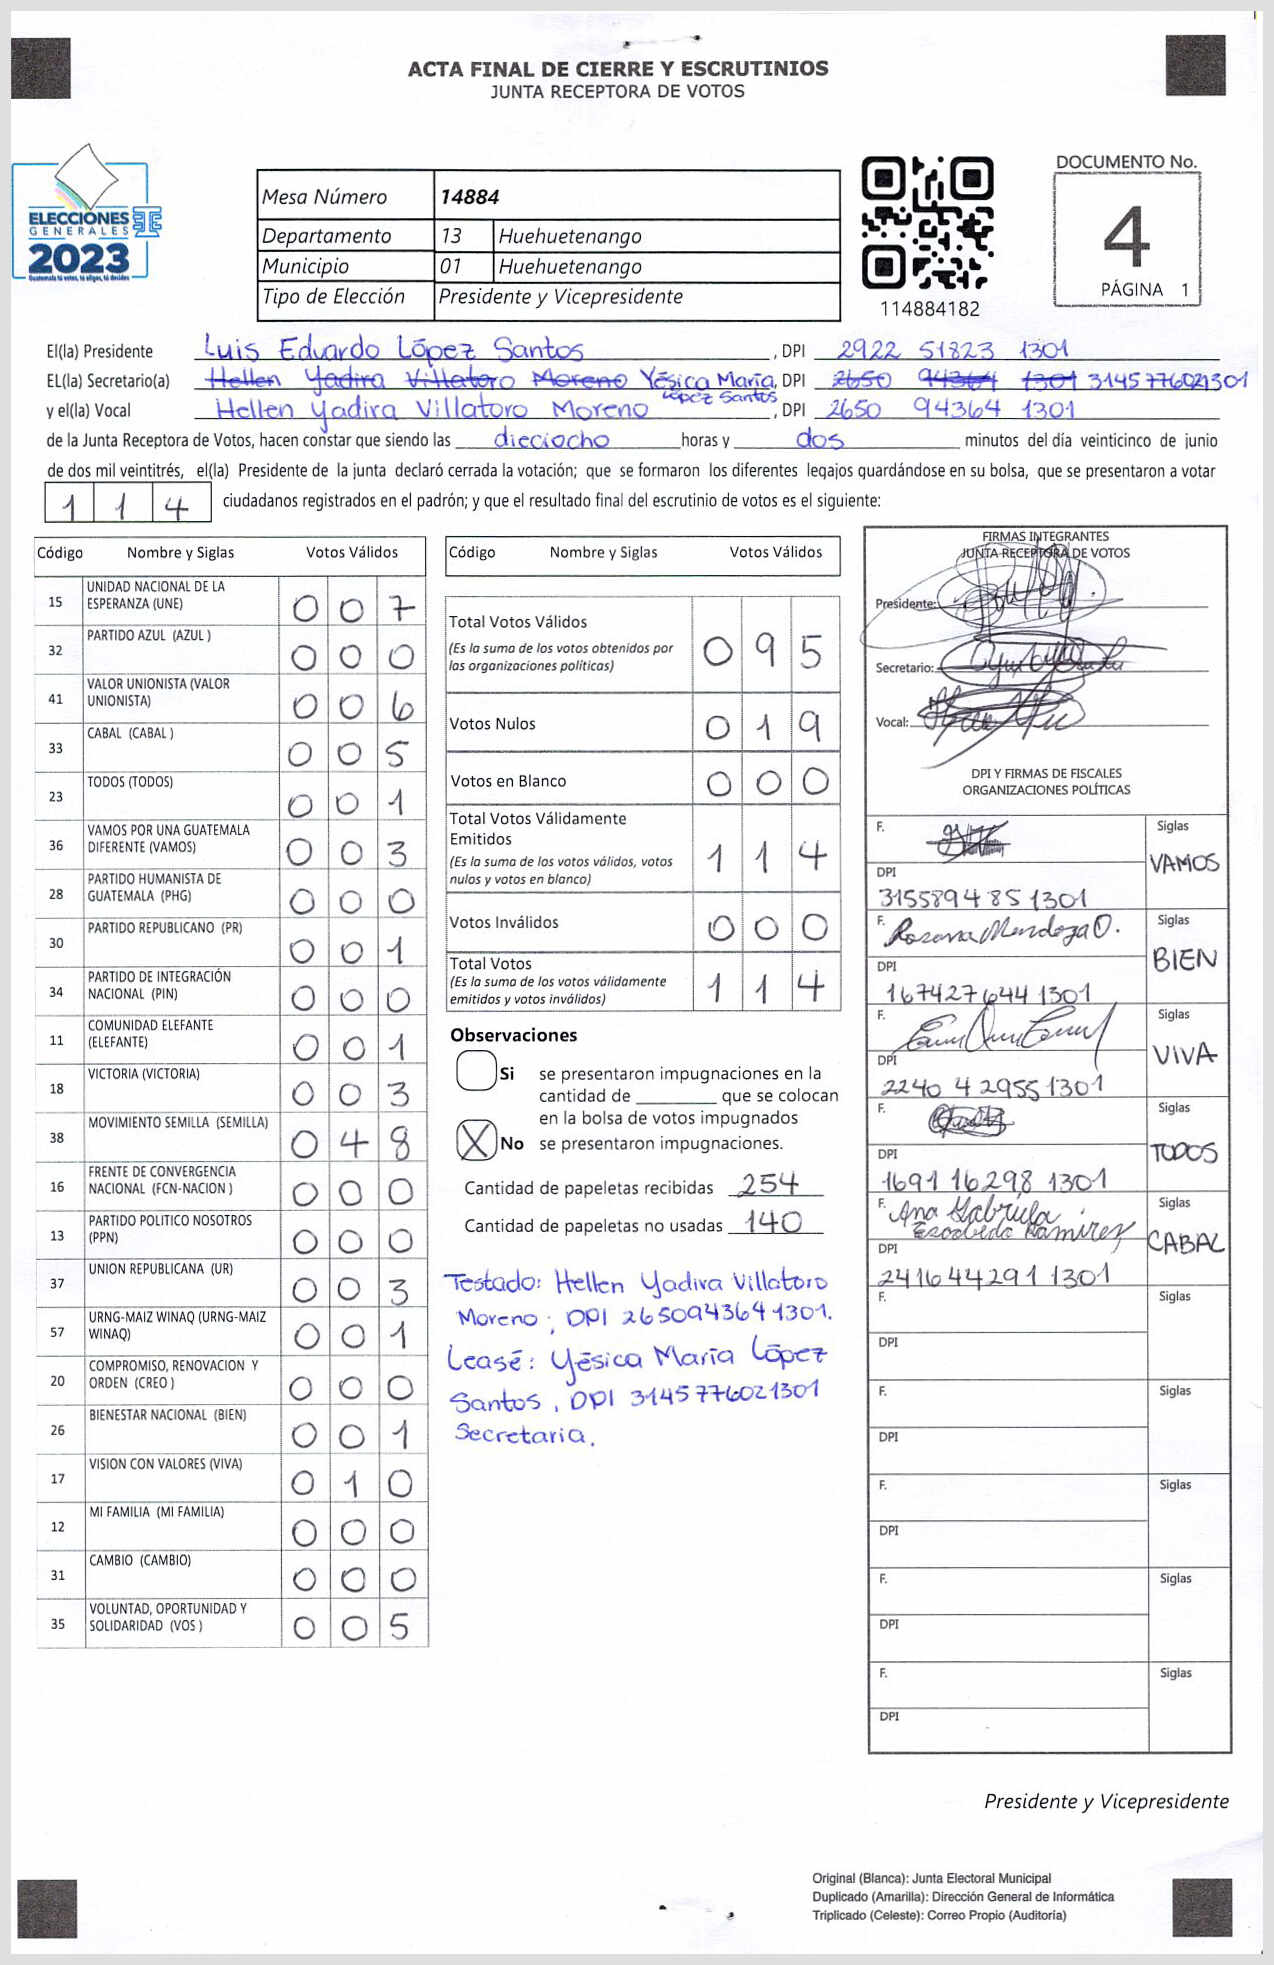 ACTA FINAL DE CIERRE Y ESCRUTINIOS
JUNTA RECEPTORA DE VOTOS
ELECCIONES
GENERALES
2023
Guatemala tú votas, tú eliges, tú decides
Mesa Número 14884
Departamento 13 Huehuetenango
Municipio 01 Huehuetenango
Tipo de Elección Presidente y Vicepresidente
114884182
DOCUMENTO No.
4
PÁGINA 1
El(la) Presidente Luis Eduardo López Santos, DPI 2922 51823 1301
EL(la) Secretario(a) Hellen Yadira Villatoro Moreno Yésica María López Santos, DPI 2650 94364 1301 3145776021301
y el(la) Vocal Hellen Yadira Villatoro Moreno, DPI 2650 94364 1301
de la Junta Receptora de Votos, hacen constar que siendo las dieciocho horas y dos minutos del día veinticinco de junio
de dos mil veintitrés, el(la) Presidente de la junta declaró cerrada la votación; que se formaron los diferentes legajos guardándose en su bolsa, que se presentaron a votar
114 ciudadanos registrados en el padrón; y que el resultado final del escrutinio de votos es el siguiente:
Código Nombre y Siglas Votos Válidos
15 UNIDAD NACIONAL DE LA ESPERANZA (UNE) 007
32 PARTIDO AZUL (AZUL ) 000
41 VALOR UNIONISTA (VALOR UNIONISTA) 006
33 CABAL (CABAL ) 005
23 TODOS (TODOS) 001
36 VAMOS POR UNA GUATEMALA DIFERENTE (VAMOS) 003
28 PARTIDO HUMANISTA DE GUATEMALA (PHG) 000
30 PARTIDO REPUBLICANO (PR) 001
34 PARTIDO DE INTEGRACIÓN NACIONAL (PIN) 000
11 COMUNIDAD ELEFANTE (ELEFANTE) 001
18 VICTORIA (VICTORIA) 003
38 MOVIMIENTO SEMILLA (SEMILLA) 048
16 FRENTE DE CONVERGENCIA NACIONAL (FCN-NACION ) 000
13 PARTIDO POLITICO NOSOTROS (PPN) 000
37 UNION REPUBLICANA (UR) 003
57 URNG-MAIZ WINAQ (URNG-MAIZ WINAQ) 001
20 COMPROMISO, RENOVACION Y ORDEN (CREO ) 000
26 BIENESTAR NACIONAL (BIEN) 001
17 VISION CON VALORES (VIVA) 010
12 MI FAMILIA (MI FAMILIA) 000
31 CAMBIO (CAMBIO) 000
35 VOLUNTAD, OPORTUNIDAD Y SOLIDARIDAD (VOS ) 005
Código Nombre y Siglas Votos Válidos
Total Votos Válidos 095
(Es la suma de los votos obtenidos por las organizaciones políticas)
Votos Nulos 019
Votos en Blanco 000
Total Votos Válidamente Emitidos 114
(Es la suma de los votos válidos, votos nulos y votos en blanco)
Votos Inválidos 000
Total Votos 114
(Es la suma de los votos válidamente emitidos y votos inválidos)
Observaciones
Si se presentaron impugnaciones en la
cantidad de ________ que se colocan
en la bolsa de votos impugnados
X No se presentaron impugnaciones.
Cantidad de papeletas recibidas 254
Cantidad de papeletas no usadas 140
Testado: Hellen Yadira Villatoro
Moreno; DPI 2650943641301.
Leasé: Yésica María López
Santos, DPI 3145776021301
Secretaria.
FIRMAS INTEGRANTES
JUNTA RECEPTORA DE VOTOS
Presidente:
Secretario:
Vocal:
DPI Y FIRMAS DE FISCALES
ORGANIZACIONES POLÍTICAS
F. Siglas
VAMOS
DPI
3155894851301
F. Rosana Mendoza O. Siglas
BIEN
DPI
1674276441301
F. Siglas
VIVA
DPI
2240 4 2955 1301
F. Siglas
TODOS
DPI
1691 16298 1301
F. Ana Gabriela Escobedo Ramirez Siglas
CABAL
DPI
2416442911301
F. Siglas
DPI
F. Siglas
DPI
F. Siglas
DPI
F. Siglas
DPI
F. Siglas
DPI
Presidente y Vicepresidente
Original (Blanca): Junta Electoral Municipal
Duplicado (Amarilla): Dirección General de Informática
Triplicado (Celeste): Correo Propio (Auditoría)